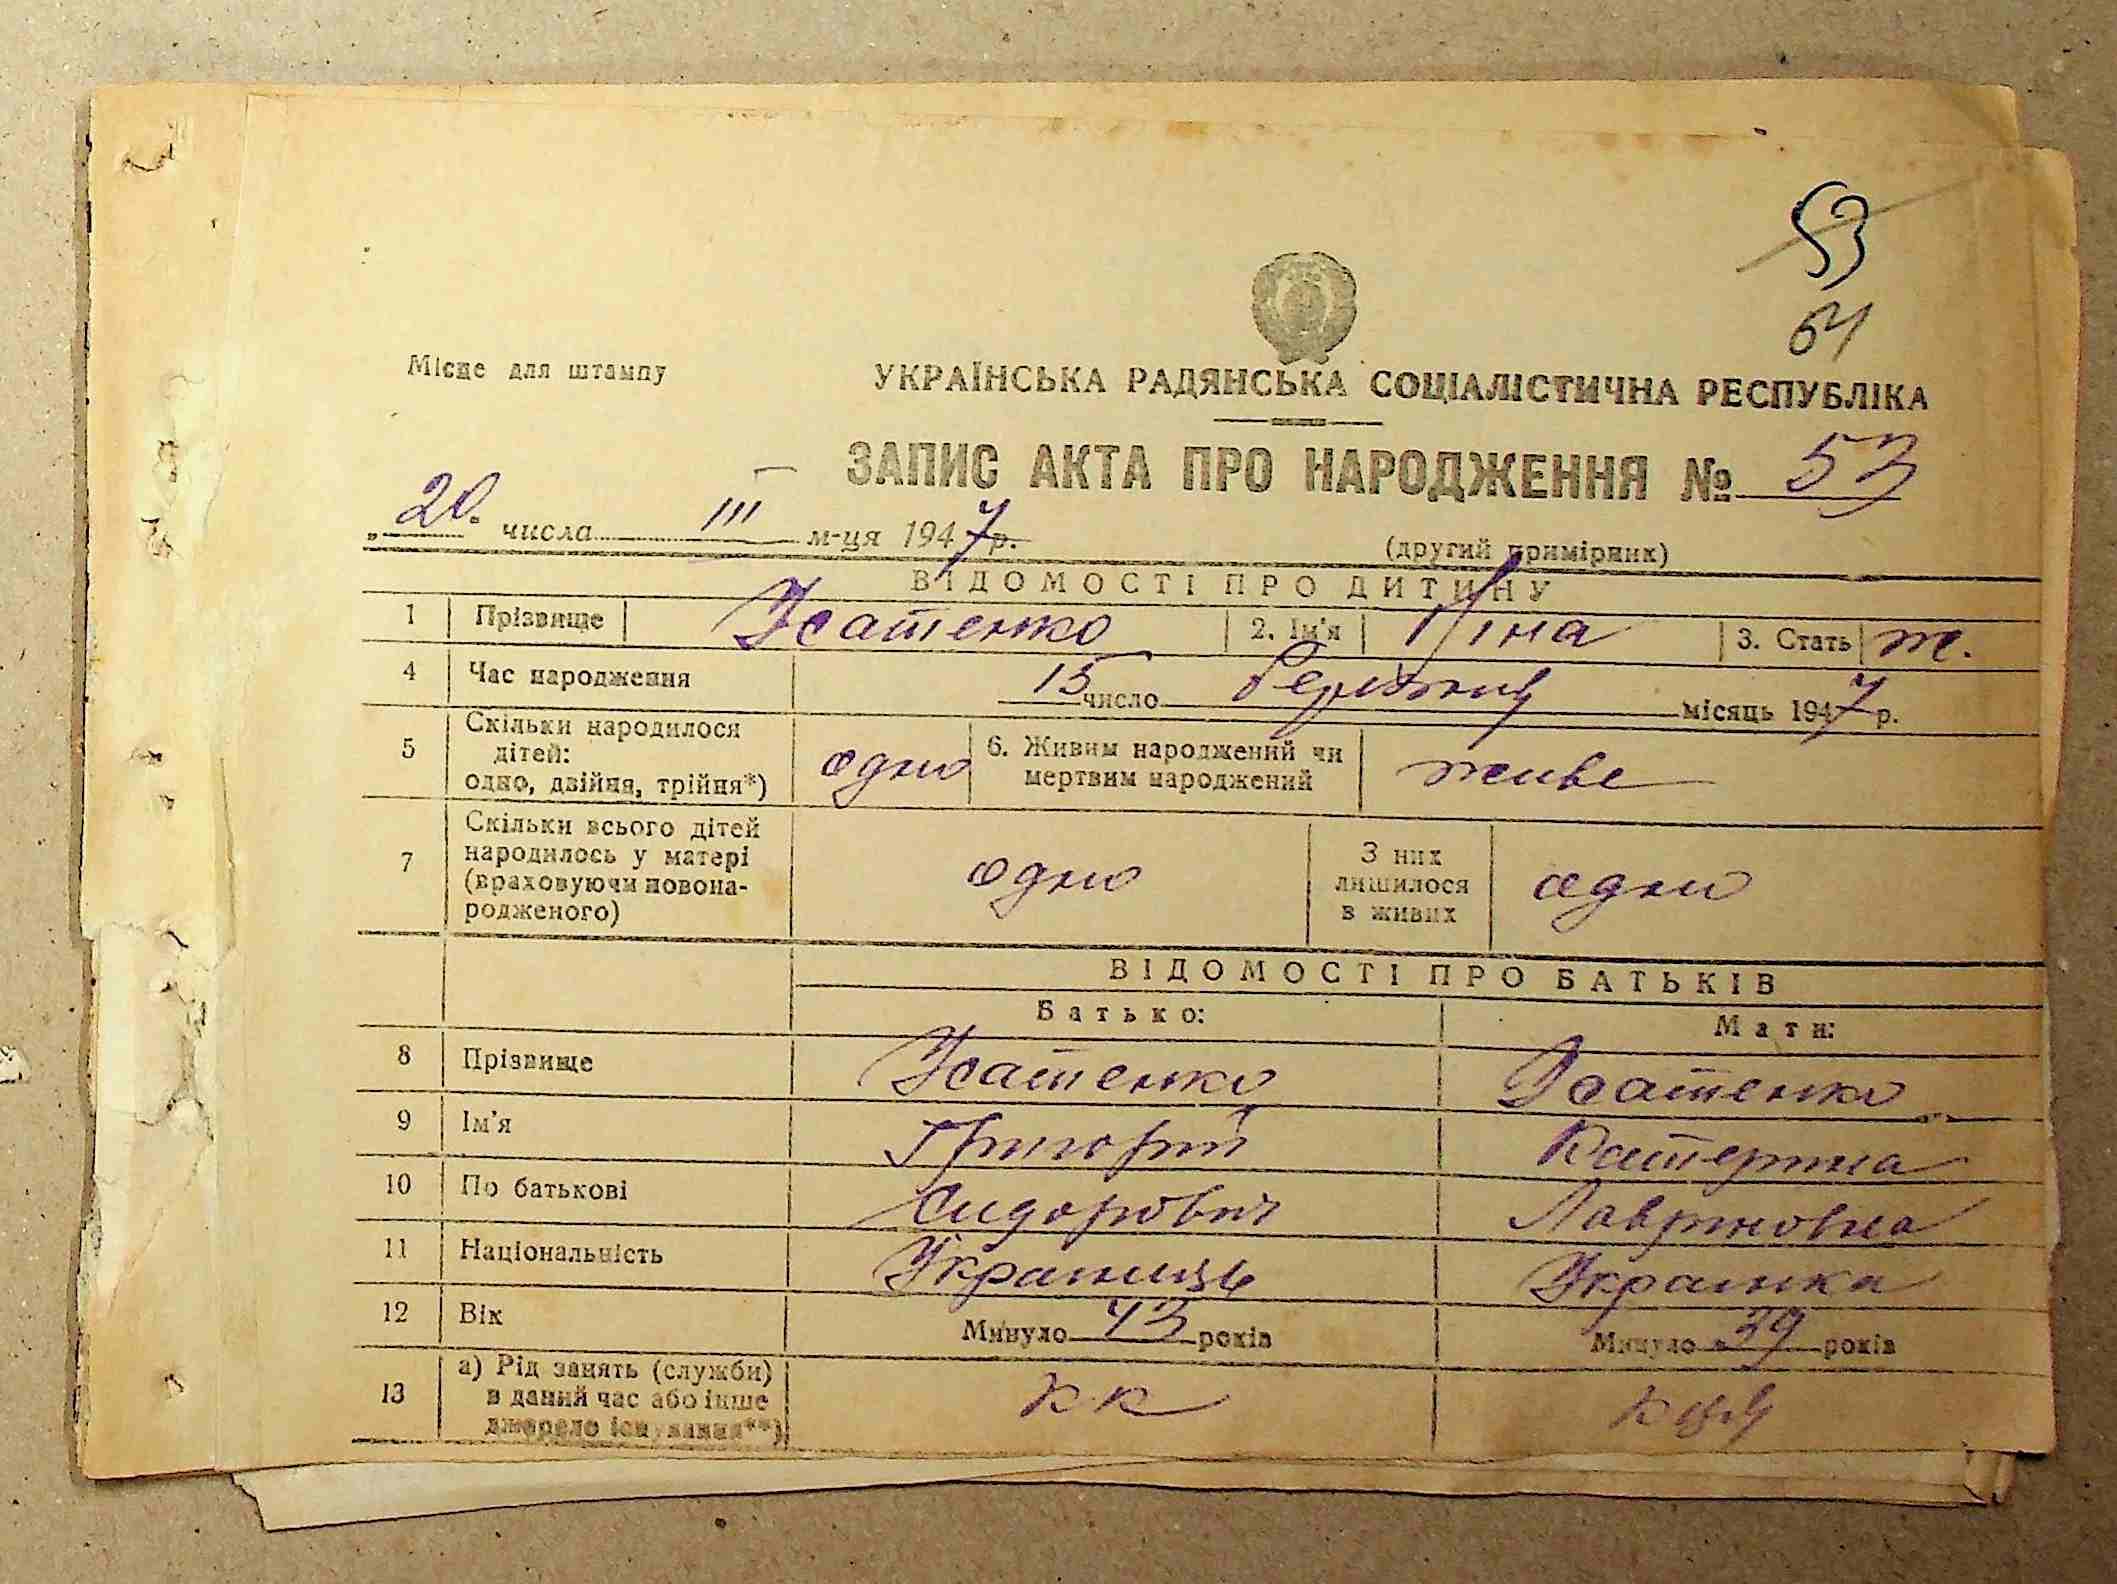 53
64
Місце для штампу
УКРАЇНСЬКА РАДЯНСЬКА СОЦІАЛІСТИЧНА РЕСПУБЛІКА
ЗАПИС АКТА ПРО НАРОДЖЕННЯ № 53
„20. числа III м-ця 1947 р.
(другий примірник)
ВІДОМОСТІ ПРО ДИТИНУ
1 Прізвище Усатенко 2. Ім'я Ніна 3. Стать ж.
4 Час народження 15 число березня місяць 1947 р.
5 Скільки народилося дітей: одно, двійня, трійня*) одно 6. Живим народжений чи мертвим народжений живе
7 Скільки всього дітей народилось у матері (враховуючи новонародженого) одно З них лишилося в живих одно
ВІДОМОСТІ ПРО БАТЬКІВ
Батько: Мати:
8 Прізвище Усатенко Усатенко
9 Ім'я Григорій Катерина
10 По батькові Сидорович Лавриновна
11 Національність Українець Українка
12 Вік Минуло 43 років Минуло 39 років
13 а) Рід занять (служби) в даний час або інше джерело існування**) кк